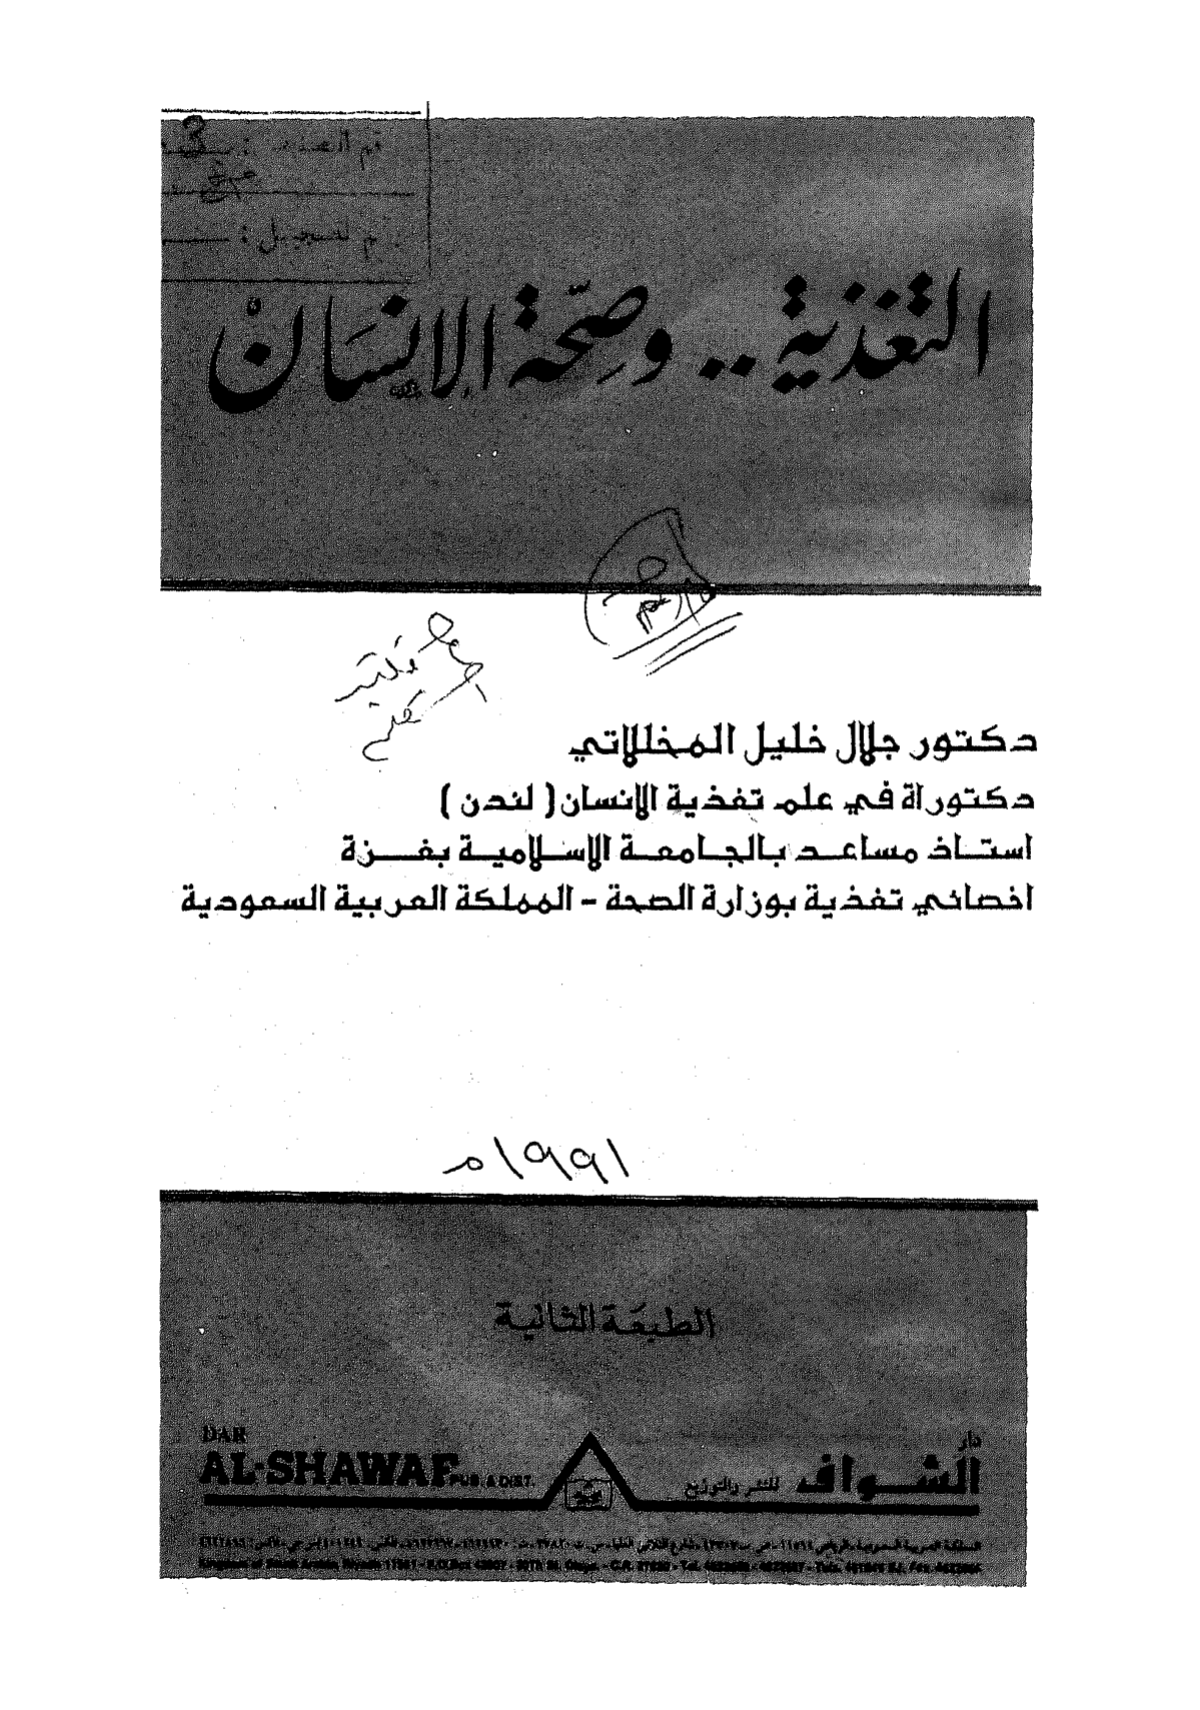 التغذية .. وصِحّة الإنسَانْ
دكتور جلال خليل المخللاتي
دكتوراة في علم تغذية الإنسان ( لندن )
استاذ مساعد بالجامعة الاسلامية بغزة
اخصائي تغذية بوزارة الصحة - المملكة العربية السعودية
١٩٩١م
الطبعة الثانية
دار
الشواف للنشر والتوزيع
DAR
AL-SHAWAF PUB. & DIST.